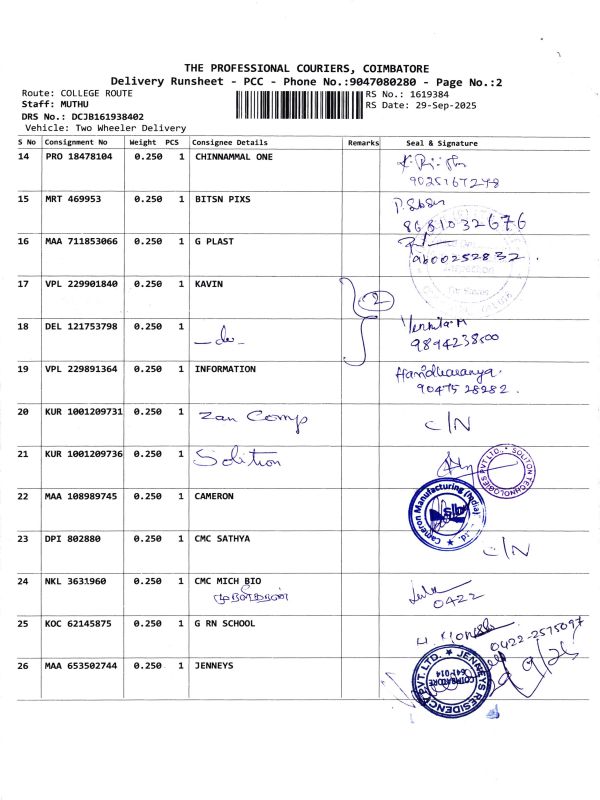 THE PROFESSIONAL COURIERS, COIMBATORE
Delivery Runsheet - PCC - Phone No.:9047080280 - Page No.:2
Route: COLLEGE ROUTE
RS No.: 1619384
Staff: MUTHU
RS Date: 29-Sep-2025
DRS No.: DCJB161938402
Vehicle: Two Wheeler Delivery
S No Consignment No Weight PCS Consignee Details Remarks Seal & Signature
14 PRO 18478104 0.250 1 CHINNAMMAL ONE
15 MRT 469953 0.250 1 BITSN PIXS
8681032676
16 MAA 711853066 0.250 1 G PLAST
9600252832
17 VPL 229901840 0.250 1 KAVIN
2
18 DEL 121753798 0.250 1 -do-
9894238500
19 VPL 229891364 0.250 1 INFORMATION
9047528282
20 KUR 1001209731 0.250 1 Zan Comp C/N
21 KUR 1001209736 0.250 1 Solition
SOLITON TECHNOLOGIES PVT LTD.
22 MAA 108989745 0.250 1 CAMERON
Cameron Manufacturing (India)
slb
23 DPI 802880 0.250 1 CMC SATHYA C/N
24 NKL 3631960 0.250 1 CMC MICH BIO
முருகேசன்
0422
25 KOC 62145875 0.250 1 G RN SCHOOL
0422-2575097
26 MAA 653502744 0.250 1 JENNEYS
JENNEYS RESIDENCY PVT. LTD.
COIMBATORE
641 014